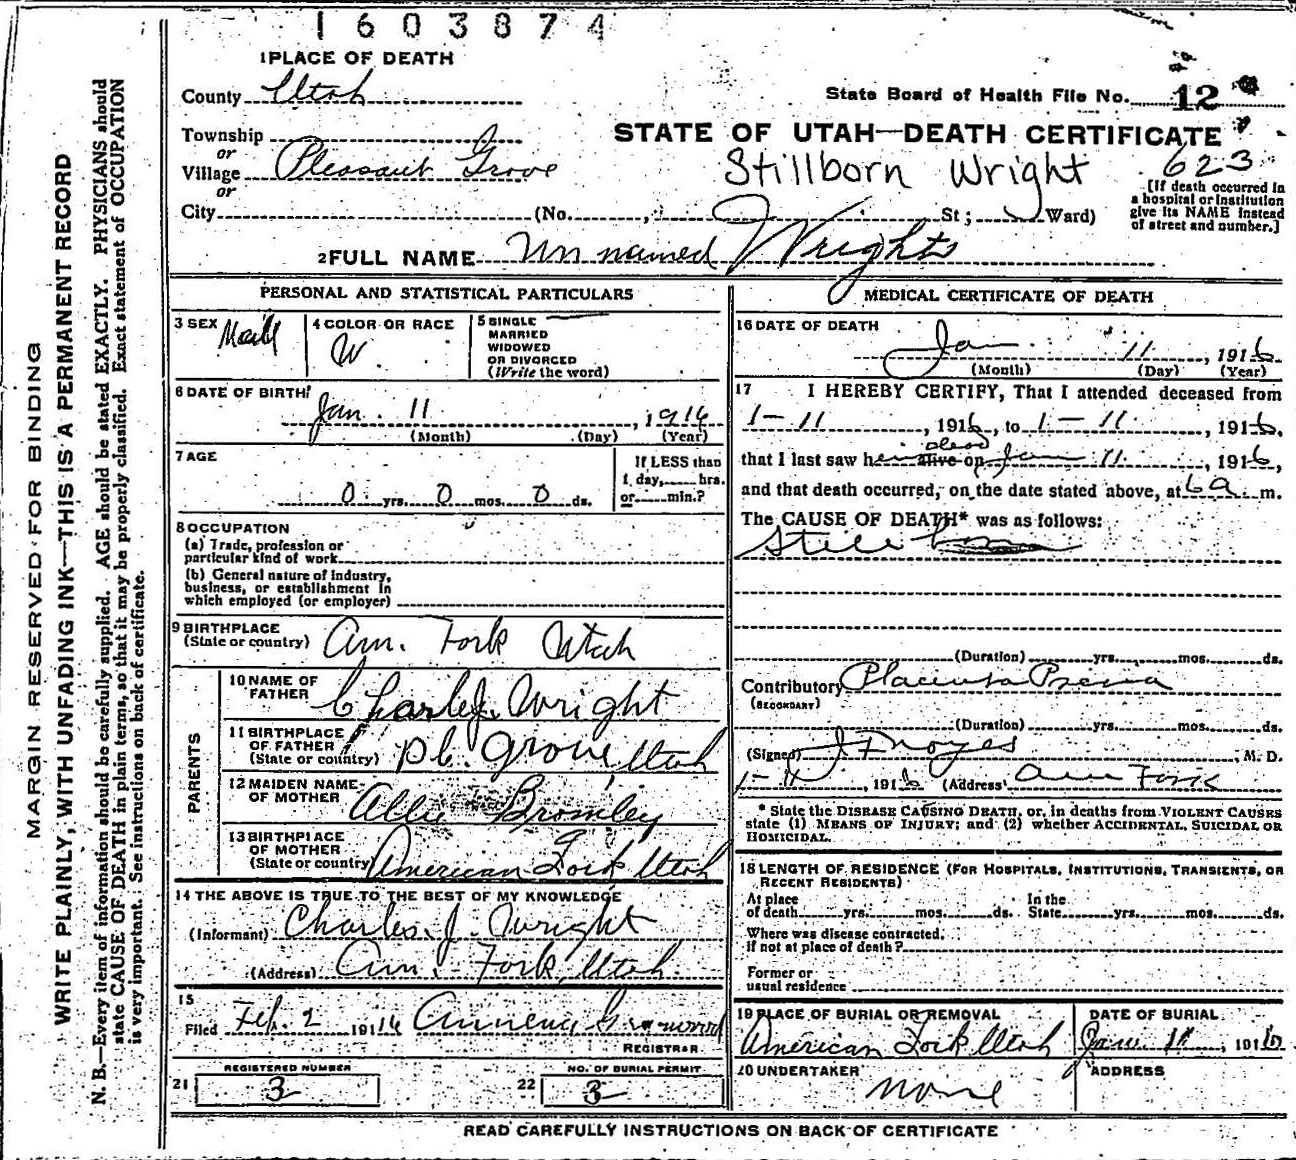 1603874
1 PLACE OF DEATH
County Utah
State Board of Health File No. 12
Township
or
Village Pleasant Grove
or
City (No. , St; Ward)
STATE OF UTAH—DEATH CERTIFICATE
Stillborn Wright 623
[If death occurred in
a hospital or institution
give its NAME instead
of street and number.]
2 FULL NAME Unnamed Wright
PERSONAL AND STATISTICAL PARTICULARS
3 SEX
4 COLOR OR RACE
W
5 SINGLE
MARRIED
WIDOWED
OR DIVORCED
(Write the word)
6 DATE OF BIRTH
Jan. 11, 1916
(Month) (Day) (Year)
7 AGE
0 yrs. 0 mos. 0 ds.
If LESS than
1 day, hrs.
or min.?
8 OCCUPATION
(a) Trade, profession or
particular kind of work
(b) General nature of industry,
business, or establishment in
which employed (or employer)
9 BIRTHPLACE
(State or country) Am. Fork Utah
PARENTS
10 NAME OF
FATHER Charley Wright
11 BIRTHPLACE
OF FATHER
(State or country) Pl. Grove Utah
12 MAIDEN NAME
OF MOTHER Allie Bromley
13 BIRTHPLACE
OF MOTHER
(State or country) American Fork Utah
14 THE ABOVE IS TRUE TO THE BEST OF MY KNOWLEDGE
(Informant) Charles J. Wright
(Address) Am. Fork, Utah.
15
Filed Feb. 2 1916
REGISTRAR
21 REGISTERED NUMBER
3
22 NO. OF BURIAL PERMIT
3
MEDICAL CERTIFICATE OF DEATH
16 DATE OF DEATH
Jan 11, 1916
(Month) (Day) (Year)
17 I HEREBY CERTIFY, That I attended deceased from
1-11, 1916, to 1-11, 1916,
dead
that I last saw h alive on Jan 11, 1916,
and that death occurred, on the date stated above, at 6 a m.
The CAUSE OF DEATH* was as follows:
Still born
(Duration) yrs. mos. ds.
Contributory Placenta Previa
(SECONDARY)
(Duration) yrs. mos. ds.
(Signed) J F Noyes, M. D.
1-11, 1916 (Address) Am Fork
* State the DISEASE CAUSING DEATH, or, in deaths from VIOLENT CAUSES
state (1) MEANS OF INJURY; and (2) whether ACCIDENTAL, SUICIDAL OR
HOMICIDAL.
18 LENGTH OF RESIDENCE (FOR HOSPITALS, INSTITUTIONS, TRANSIENTS, OR
RECENT RESIDENTS)
At place
of death yrs. mos. ds.
In the
State yrs. mos. ds.
Where was disease contracted,
if not at place of death?
Former or
usual residence
19 PLACE OF BURIAL OR REMOVAL
American Fork Utah
DATE OF BURIAL
Jan 11, 1916
20 UNDERTAKER
none
ADDRESS
READ CAREFULLY INSTRUCTIONS ON BACK OF CERTIFICATE
MARGIN RESERVED FOR BINDING
WRITE PLAINLY, WITH UNFADING INK—THIS IS A PERMANENT RECORD
N. B.—Every item of information should be carefully supplied. AGE should be stated EXACTLY. PHYSICIANS should
state CAUSE OF DEATH in plain terms, so that it may be properly classified. Exact statement of OCCUPATION
is very important. See instructions on back of certificate.